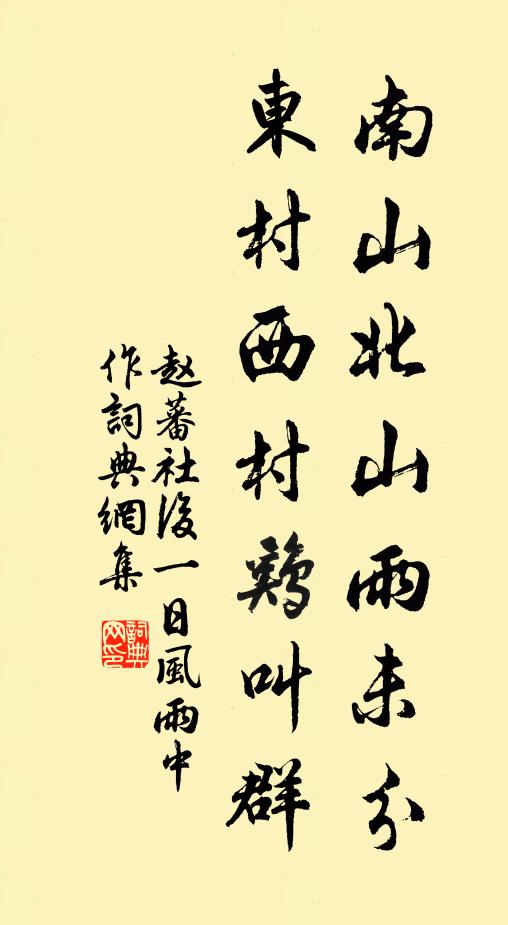 南山北山雨未分
東村西村鷄叫群
趙蕃社後一日風雨中
作詞典網集
詞典網印